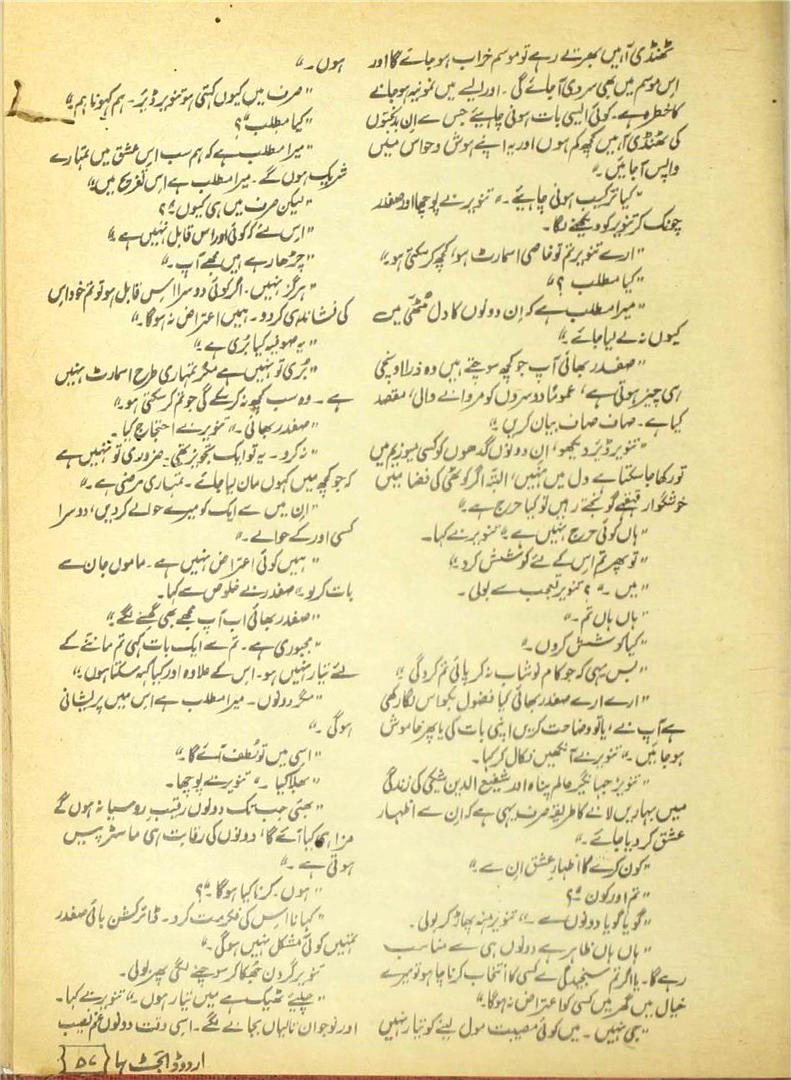 ٹھنڈی آہیں بھرتے رہے تو موسم خراب ہو جائے گا اور
اس موسم میں بھی سردی آ جائے گی۔ اور ایسے میں نمونیہ ہو جانے
کا خطرہ ہے۔ کوئی ایسی بات ہونی چاہیئے جس سے ان
کی ٹھنڈی آہیں کچھ کم ہوں اور یہ اپنے ہوش و حواس میں
واپس آ جائیں۔"
"کیا ترکیب ہونی چاہیے۔" تنویر نے پوچھا اور صفدر
چونک کر تنویر کو دیکھنے لگا۔
"ارے تنویر تم تو خاصی اسمارٹ ہو، کچھ کر سکتی ہو۔"
"کیا مطلب ؟"
"میرا مطلب ہے کہ ان دونوں کا دل مٹھی میں
کیوں نہ لے لیا جائے۔"
"صفدر بھائی آپ جو کچھ سوچتے ہیں وہ ذرا اونچی
ہی چیز ہوتی ہے، عموماً دوسروں کو مروانے والی، مقصد
کیا ہے۔ صاف صاف بیان کریں۔"
"تنویر ڈیئر دیکھو، ان دونوں گدھوں کو کسی میوزیم میں
تو رکھا جا سکتا ہے دل میں نہیں، البتہ اگر کوٹھی کی فضا میں
خوشگوار قہقہے گونجتے رہیں تو کیا حرج ہے۔"
"ہاں کوئی حرج نہیں ہے۔" تنویر نے کہا۔
"تو پھر تم اس کے لئے کوشش کرو۔"
"میں۔" ؟ تنویر تعجب سے بولی۔
"ہاں ہاں تم۔"
"کیا کوشش کروں۔"
"بس یہی کہ جو کام نوشاب نہ کر پائی تم کرو گی۔"
"ارے ارے صفدر بھائی کیا فضول بکواس لگا رکھی
ہے آپ نے، یا تو وضاحت کریں اپنی بات کی یا پھر خاموش
ہو جائیں۔" تنویر نے آنکھیں نکال کر کہا۔
"تنویر جہانگیر عالم پناہ اور شفیع الدین شیکی کی زندگی
میں بہاریں لانے کا طریقہ صرف یہی ہے کہ ان سے اظہار
عشق کر دیا جائے۔"
"کون کرے گا اظہار عشق ان سے۔"
"تم اور کون۔"؟
"گویا گویا دونوں سے۔" تنویر منہ پھاڑ کر بولی۔
"ہاں ہاں ظاہر ہے دونوں ہی سے مناسب
رہے گا۔ یا اگر تم سنجیدگی سے کسی کا انتخاب کرنا چاہو تو میرے
خیال میں گھر میں کسی کو اعتراض نہ ہو گا۔"
"جی نہیں۔ میں کوئی مصیبت مول لینے کو تیار نہیں
ہوں۔"
"صرف میں کیوں کہتی ہو تنویر ڈیئر۔ ہم کہو نا ہم۔"
"کیا مطلب"؟
"میرا مطلب ہے کہ ہم سب اس عشق میں تمہارے
شریک ہوں گے۔ میرا مطلب ہے اس تفریح میں۔"
"لیکن صرف میں ہی کیوں۔"؟
"اس لئے کہ کوئی اور اس قابل نہیں ہے۔"
"چڑھا رہے ہیں مجھے آپ۔"
"ہرگز نہیں۔ اگر کوئی دوسرا اس قابل ہو تو تم خود اس
کی نشاندہی کر دو۔ ہمیں اعتراض نہ ہو گا۔"
"یہ صوفیہ کیا بُری ہے۔"
"بُری تو نہیں ہے مگر تمہاری طرح اسمارٹ نہیں
ہے۔ وہ سب کچھ نہ کر سکے گی جو تم کر سکتی ہو۔"
"صفدر بھائی۔" تنویر نے احتجاج کیا۔
"نہ کرو۔ یہ تو ایک تجویز تھی۔ ضروری تو نہیں ہے
کہ جو کچھ میں کہوں مان لیا جائے۔ تمہاری مرضی ہے۔"
"ان میں سے ایک کو میرے حوالے کر دیں، دوسرا
کسی اور کے حوالے۔"
"ہمیں کوئی اعتراض نہیں ہے۔ ماموں جان سے
بات کر لو۔" صفدر نے خلوص سے کہا۔
"صفدر بھائی اب آپ مجھے بھی گھسنے لگے۔"
"مجبوری ہے۔ تم سے ایک بات کہی تم ماننے کے
لئے تیار نہیں ہو۔ اس کے علاوہ اور کیا کہہ سکتا ہوں۔"
"مگر دونوں۔ میرا مطلب ہے اس میں پریشانی
ہو گی۔"
"اسی میں تو لُطف آئے گا۔"
"بھلا کیا۔" تنویر نے پوچھا۔
"بھئی جب تک دونوں رقیب روسیا نہ ہوں گے
مزا ہی کیا آئے گا، دونوں کی رقابت ہی ماسٹر پیس
ہوتی ہے۔"
"ہوں۔ کرنا کیا ہو گا۔"؟
"کہا نا اس کی فکر مت کرو۔ ڈائرکشن بائی صفدر
تمہیں کوئی مشکل نہیں ہو گی۔"
تنویر گردن جھکا کر سوچنے لگی پھر بولی۔
"چلیئے ٹھیک ہے میں تیار ہوں۔" تنویر نے کہا۔
اور نوجوان تالیاں بجانے لگے۔ اسی وقت دونوں غم نصیب
اردو ڈائجسٹ ہما {۵۷}